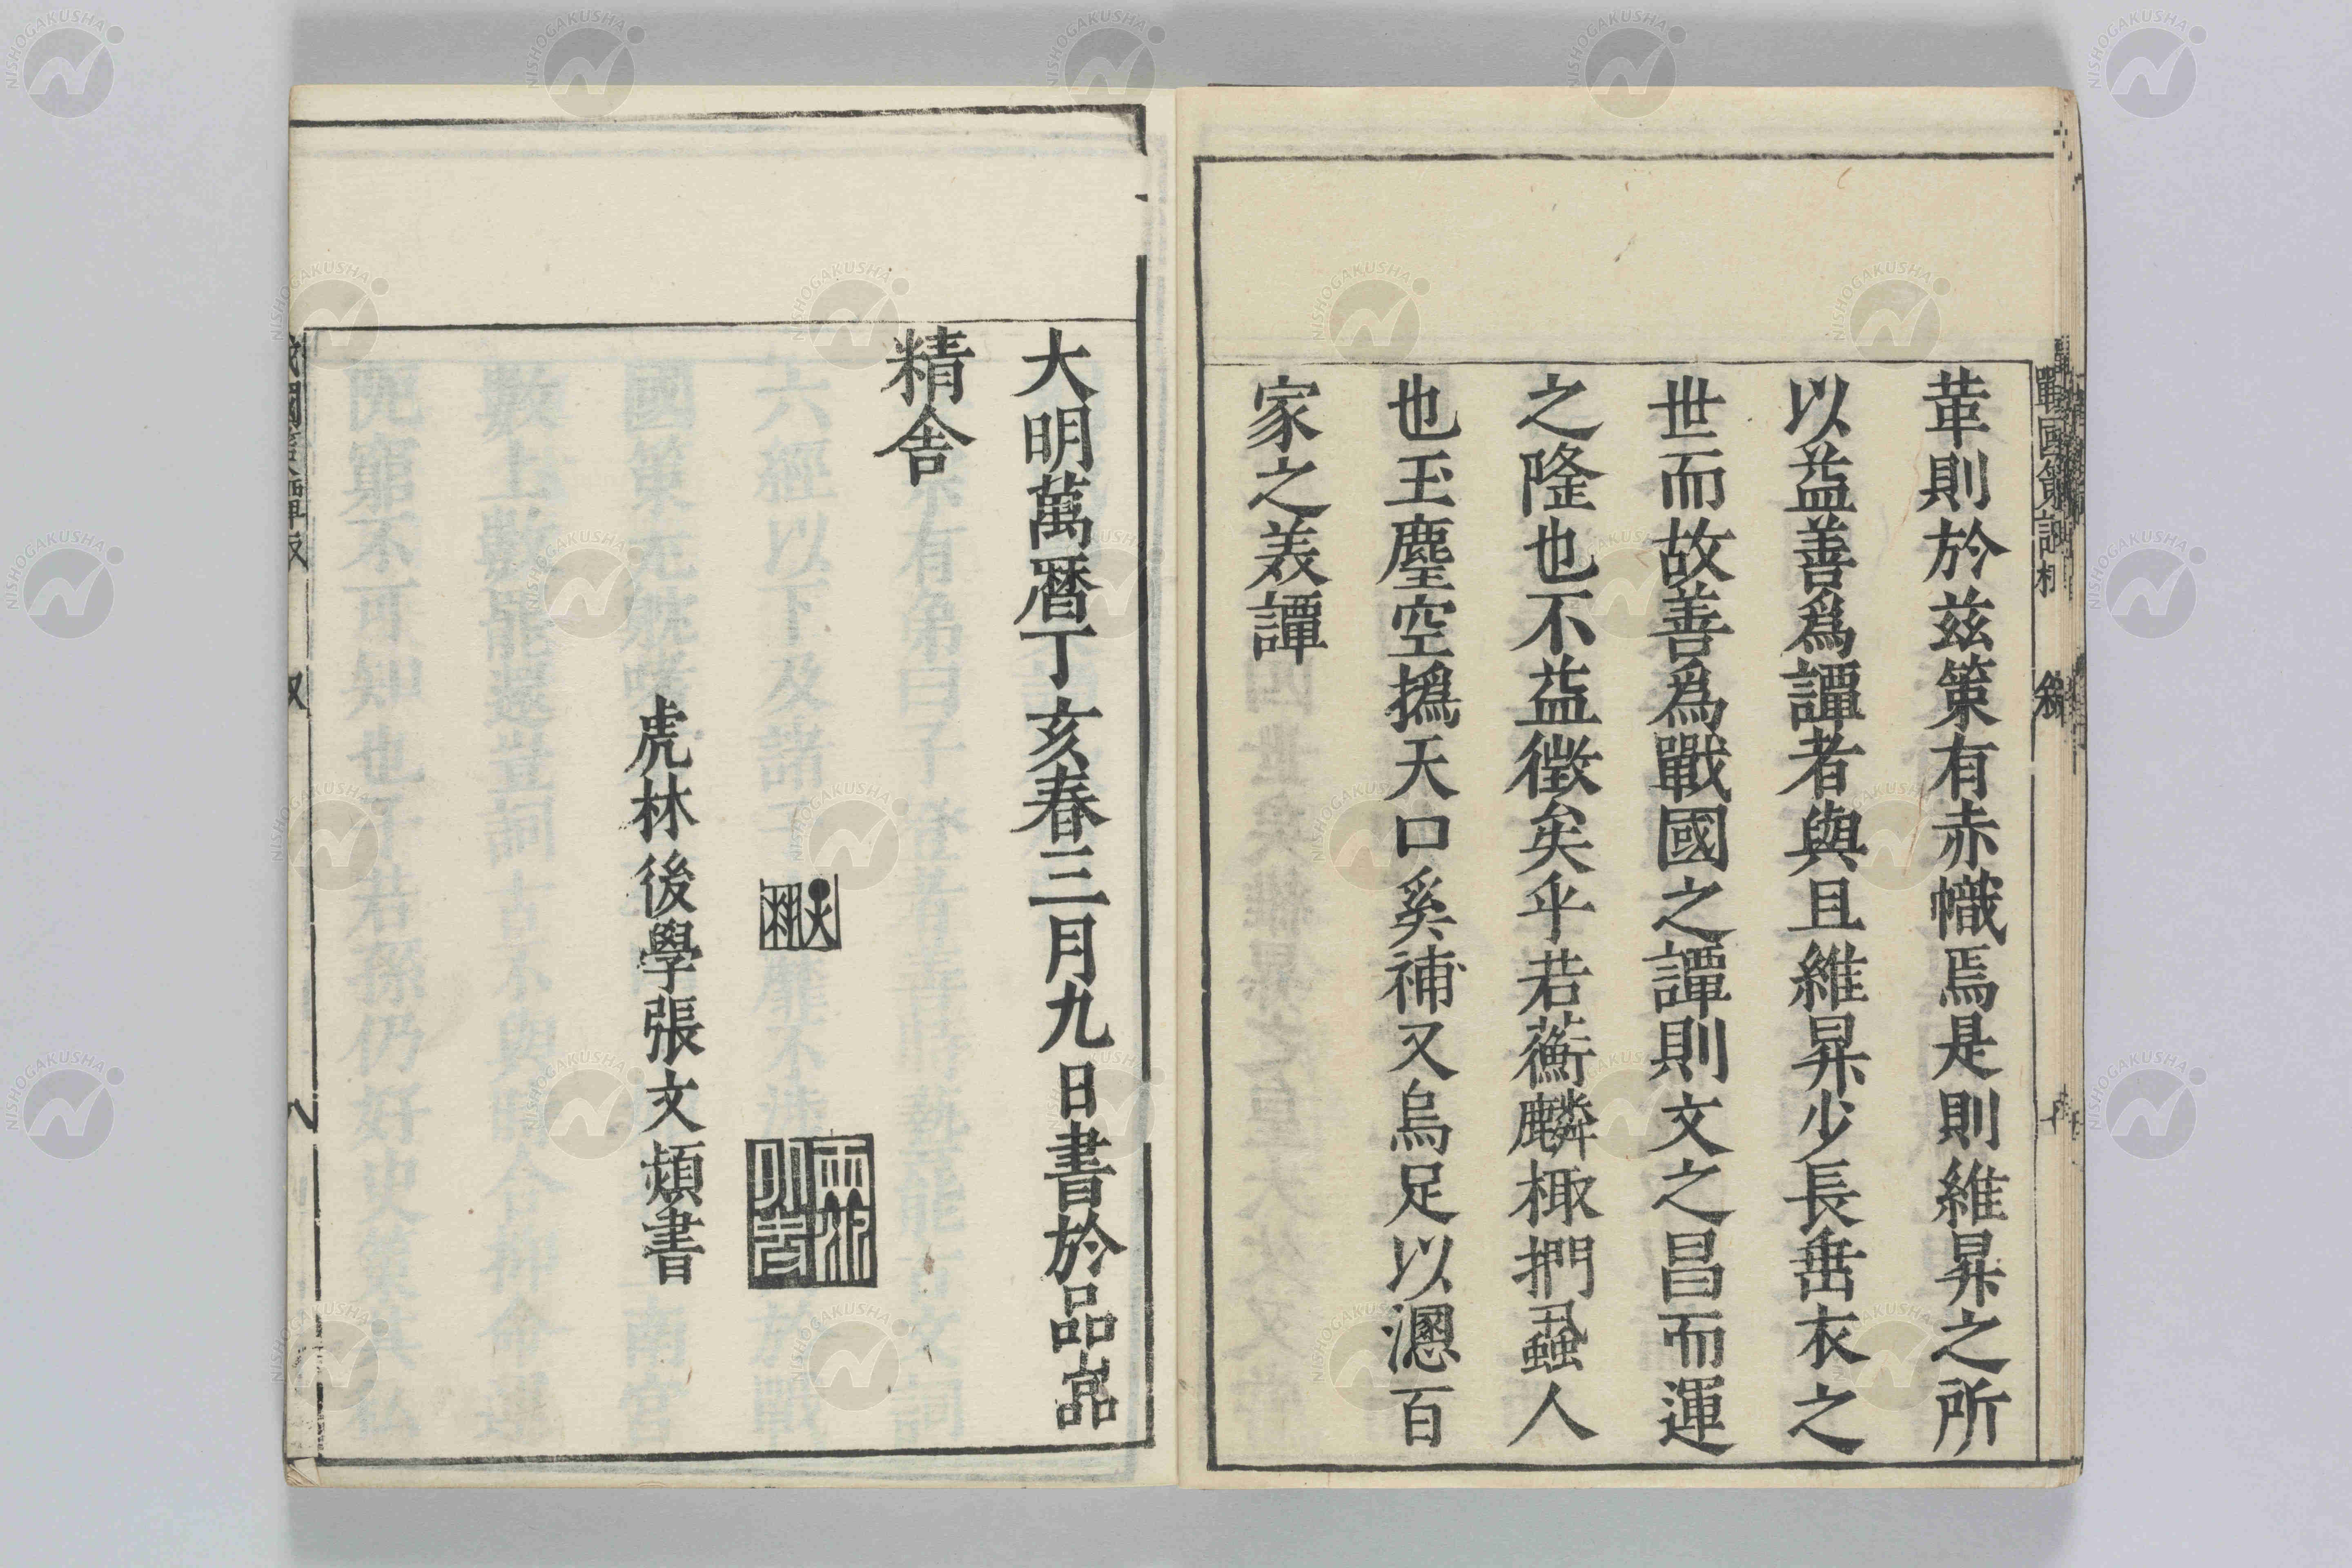 戰國策譚棷
敘
葦則於茲策有赤幟焉是則維昇之所
以益善爲譚者與且維昇少長垂衣之
世而故善爲戰國之譚則文之昌而運
之隆也不益徵矣乎若蘅麟棷捫蝨人
也玉麈空撝天口奚補又烏足以溷百
家之羙譚
大明萬曆丁亥春三月九日書於品嵓
精舍
虎林後學張文頫書
NISHOGAKUSHA